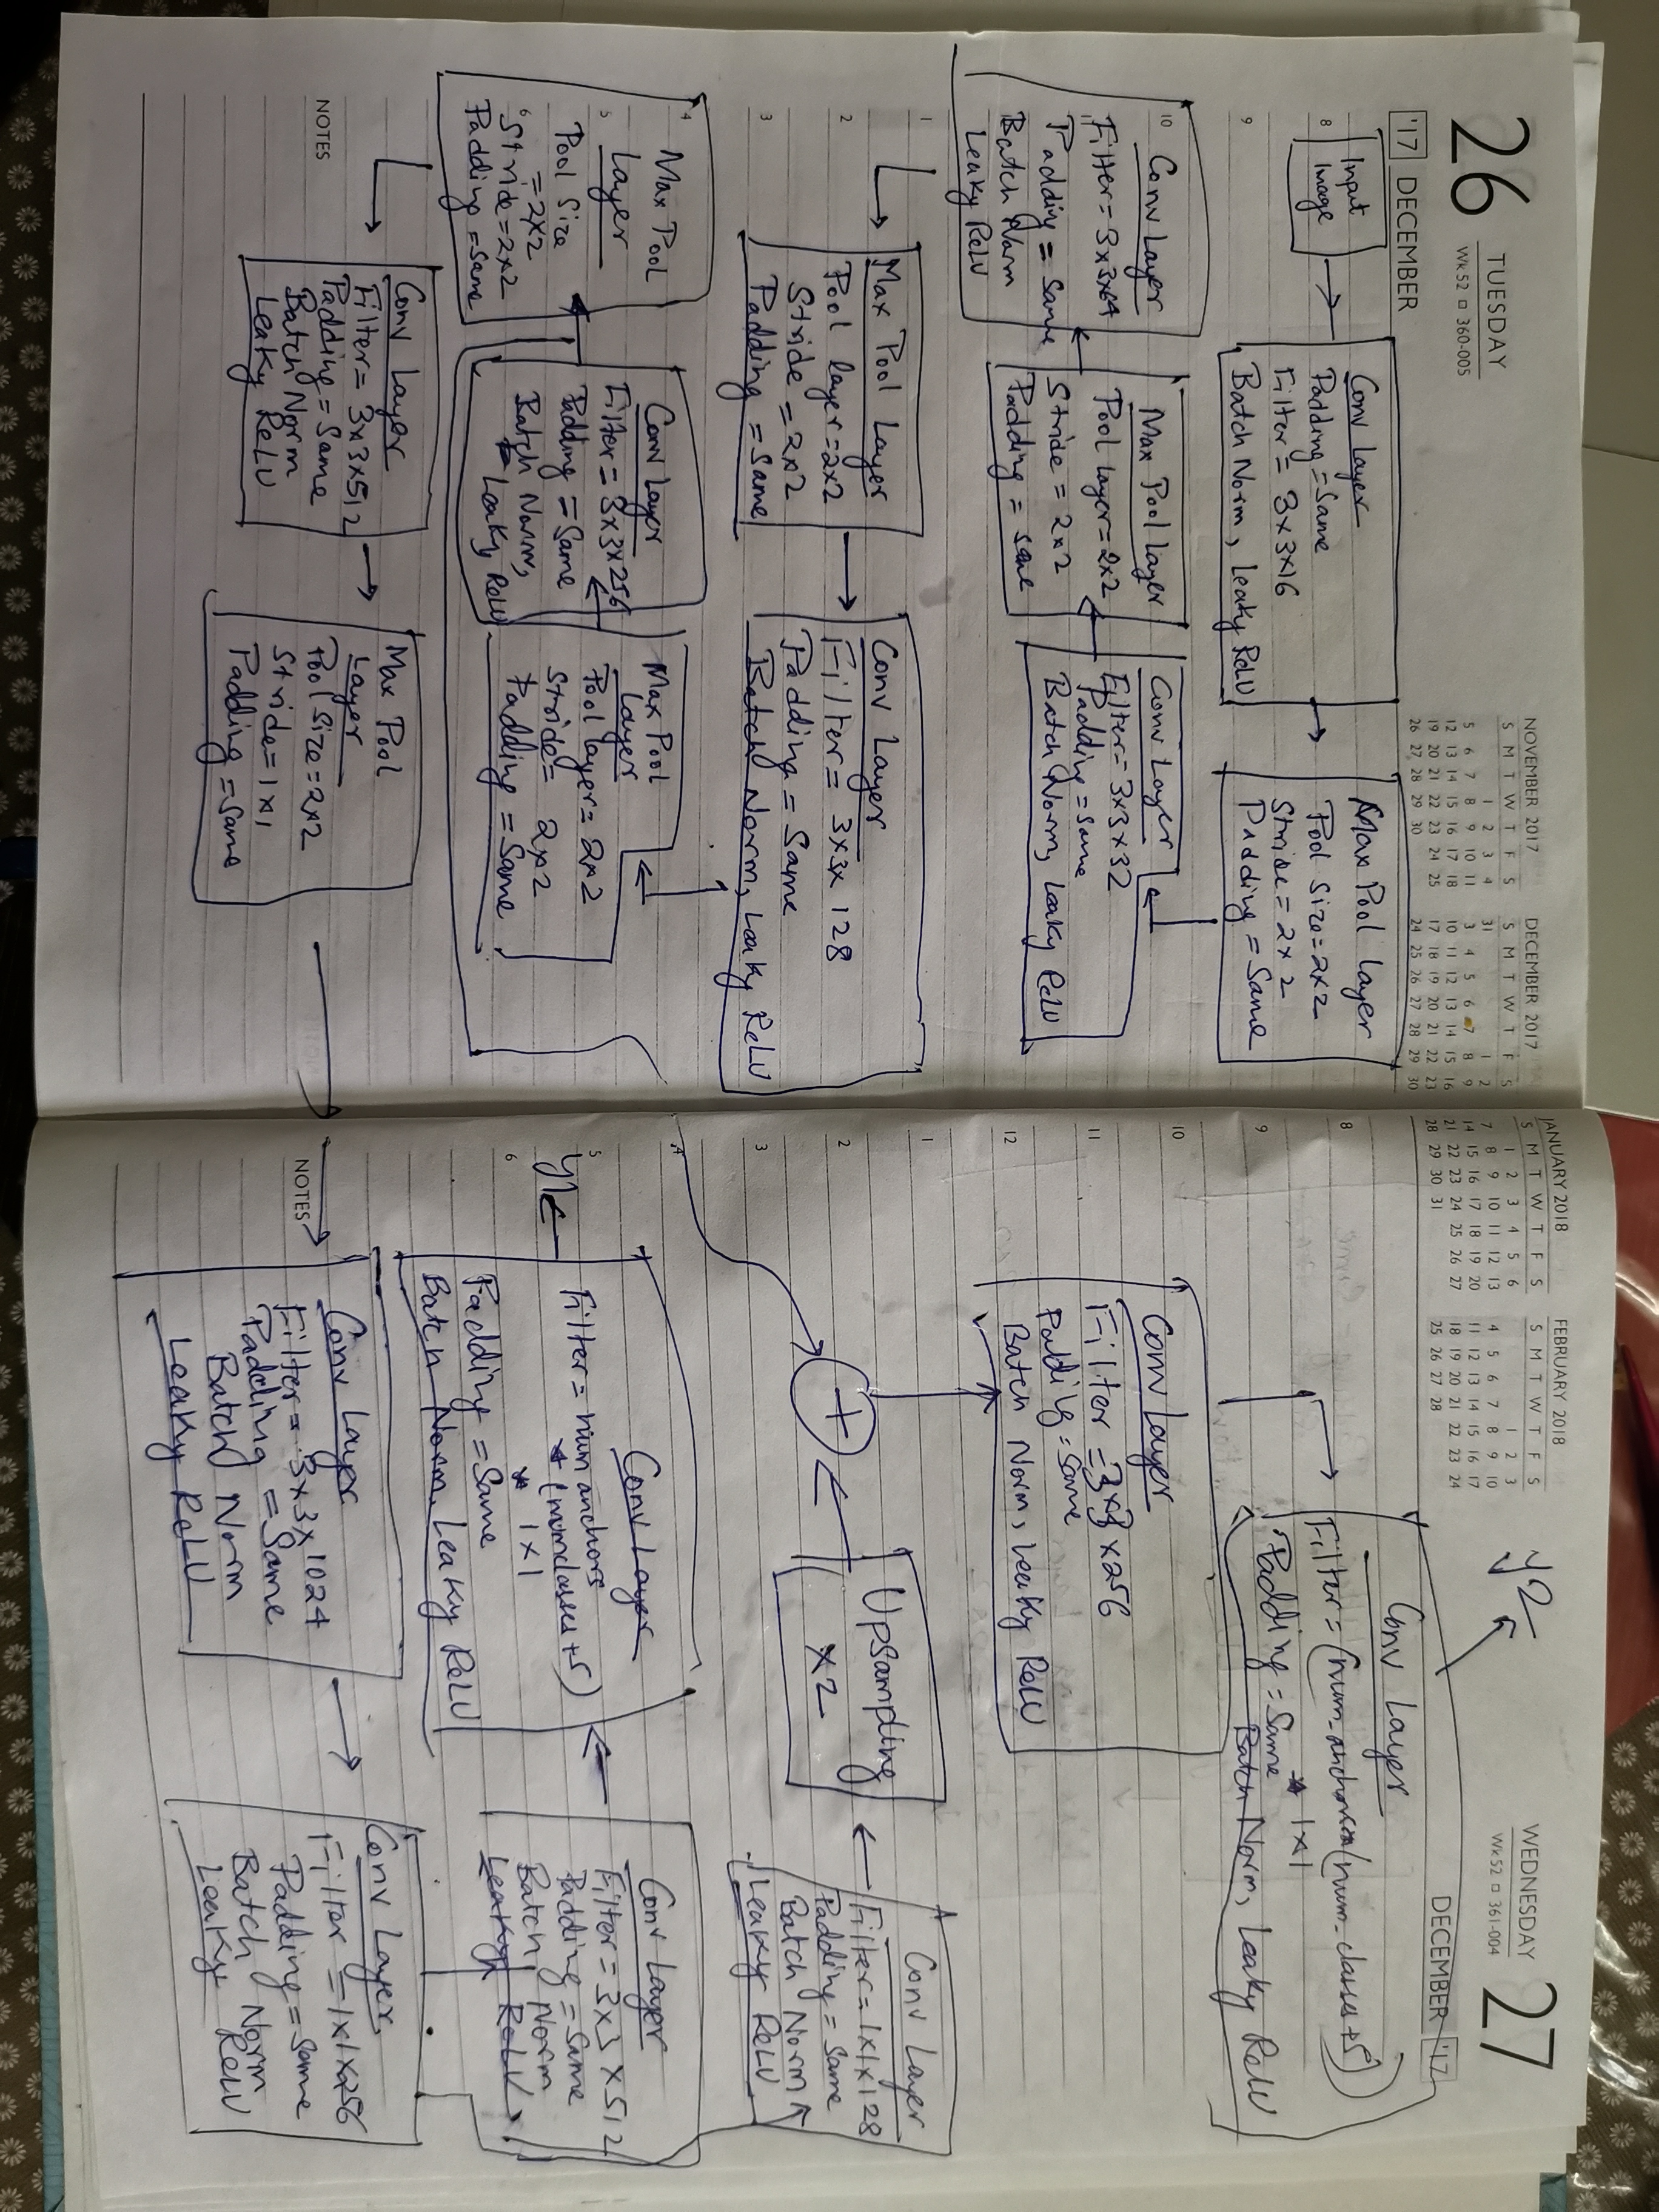 26
TUESDAY
Wk 52 360-005
'17 DECEMBER
NOVEMBER 2017
S M T W T F S
1 2 3 4
5 6 7 8 9 10 11
12 13 14 15 16 17 18
19 20 21 22 23 24 25
26 27 28 29 30
DECEMBER 2017
S M T W T F S
31 1 2
3 4 5 6 7 8 9
10 11 12 13 14 15 16
17 18 19 20 21 22 23
24 25 26 27 28 29 30
8
9
10
11
1
2
3
4
5
6
NOTES
Input
Image
Conv Layer
Padding = Same
Filter = 3x3x16
Batch Norm, Leaky ReLU
Max Pool Layer
Pool Size = 2x2
Stride = 2x2
Padding = Same
Conv Layer
Filter = 3x3x32
Padding = Same
Batch Norm, Leaky ReLU
Max Pool Layer
Pool Layer = 2x2
Stride = 2x2
Padding = same
Conv Layer
Filter = 3x3x64
Padding = Same
Batch Norm
Leaky ReLU
Max Pool Layer
Pool layer = 2x2
Stride = 2x2
Padding = Same
Conv Layer
Filter = 3x3x 128
Padding = Same
Batch Norm, Leaky ReLU
Max Pool
Layer
Pool layer = 2x2
Stride = 2x2
Padding = Same
Conv Layer
Filter = 3x3x256
Padding = Same
Batch Norm,
Leaky ReLU
Max Pool
Layer
Pool Size
= 2x2
Stride = 2x2
Padding = Same
Conv Layer
Filter = 3x3x512
Padding = Same
Batch Norm
Leaky ReLU
Max Pool
Layer
Pool Size = 2x2
Stride = 1x1
Padding = Same
JANUARY 2018
S M T W T F S
1 2 3 4 5 6
7 8 9 10 11 12 13
14 15 16 17 18 19 20
21 22 23 24 25 26 27
28 29 30 31
FEBRUARY 2018
S M T W T F S
1 2 3
4 5 6 7 8 9 10
11 12 13 14 15 16 17
18 19 20 21 22 23 24
25 26 27 28
WEDNESDAY
Wk 52 361-004
27
DECEMBER '17
8
9
10
11
12
1
2
3
4
5
6
NOTES
Conv Layer
Filter = 3x3x1024
Padding = Same
Batch Norm
Leaky ReLU
Conv Layer
Filter = 1x1x256
Padding = Same
Batch Norm
Leaky ReLU
Conv Layer
Filter = 3x3x512
Padding = Same
Batch Norm
Leaky ReLU
Conv Layer
Filter = num anchors
* (numclasses+5)
* 1x1
Padding = Same
Batch Norm, Leaky ReLU
y1
Conv Layer
Filter = 1x1x128
Padding = Same
Batch Norm
Leaky ReLU
Upsampling
x2
+
Conv Layer
Filter = 3x3x256
Padding = Same
Batch Norm, Leaky ReLU
Conv Layer
Filter = (num_anchors (num_classes+5))
* 1x1
Padding = Same
Batch Norm, Leaky ReLU
y2